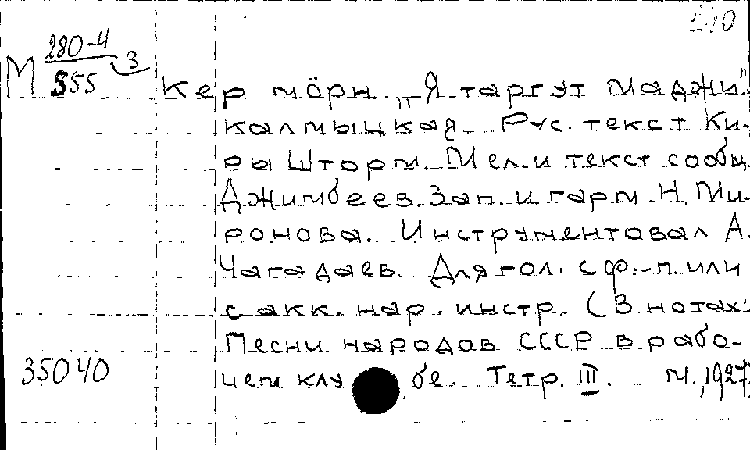 280-4
М 555 3
Кер мöрн „Я таргут Маджи"
калмыцкая. Рус. текст Ки-
ры Шторм. Мел. и текст сообщ.
Джимбеев. Зап. и гарм. Н. Ми-
ронова. Инструментовал А.
Чагадаев. Для гол. с ф.-п. или
с акк. нар. инстр. (В нотах:
Песни народов СССР в рабо-
35040 чем клубе. Тетр. III. М., 1927